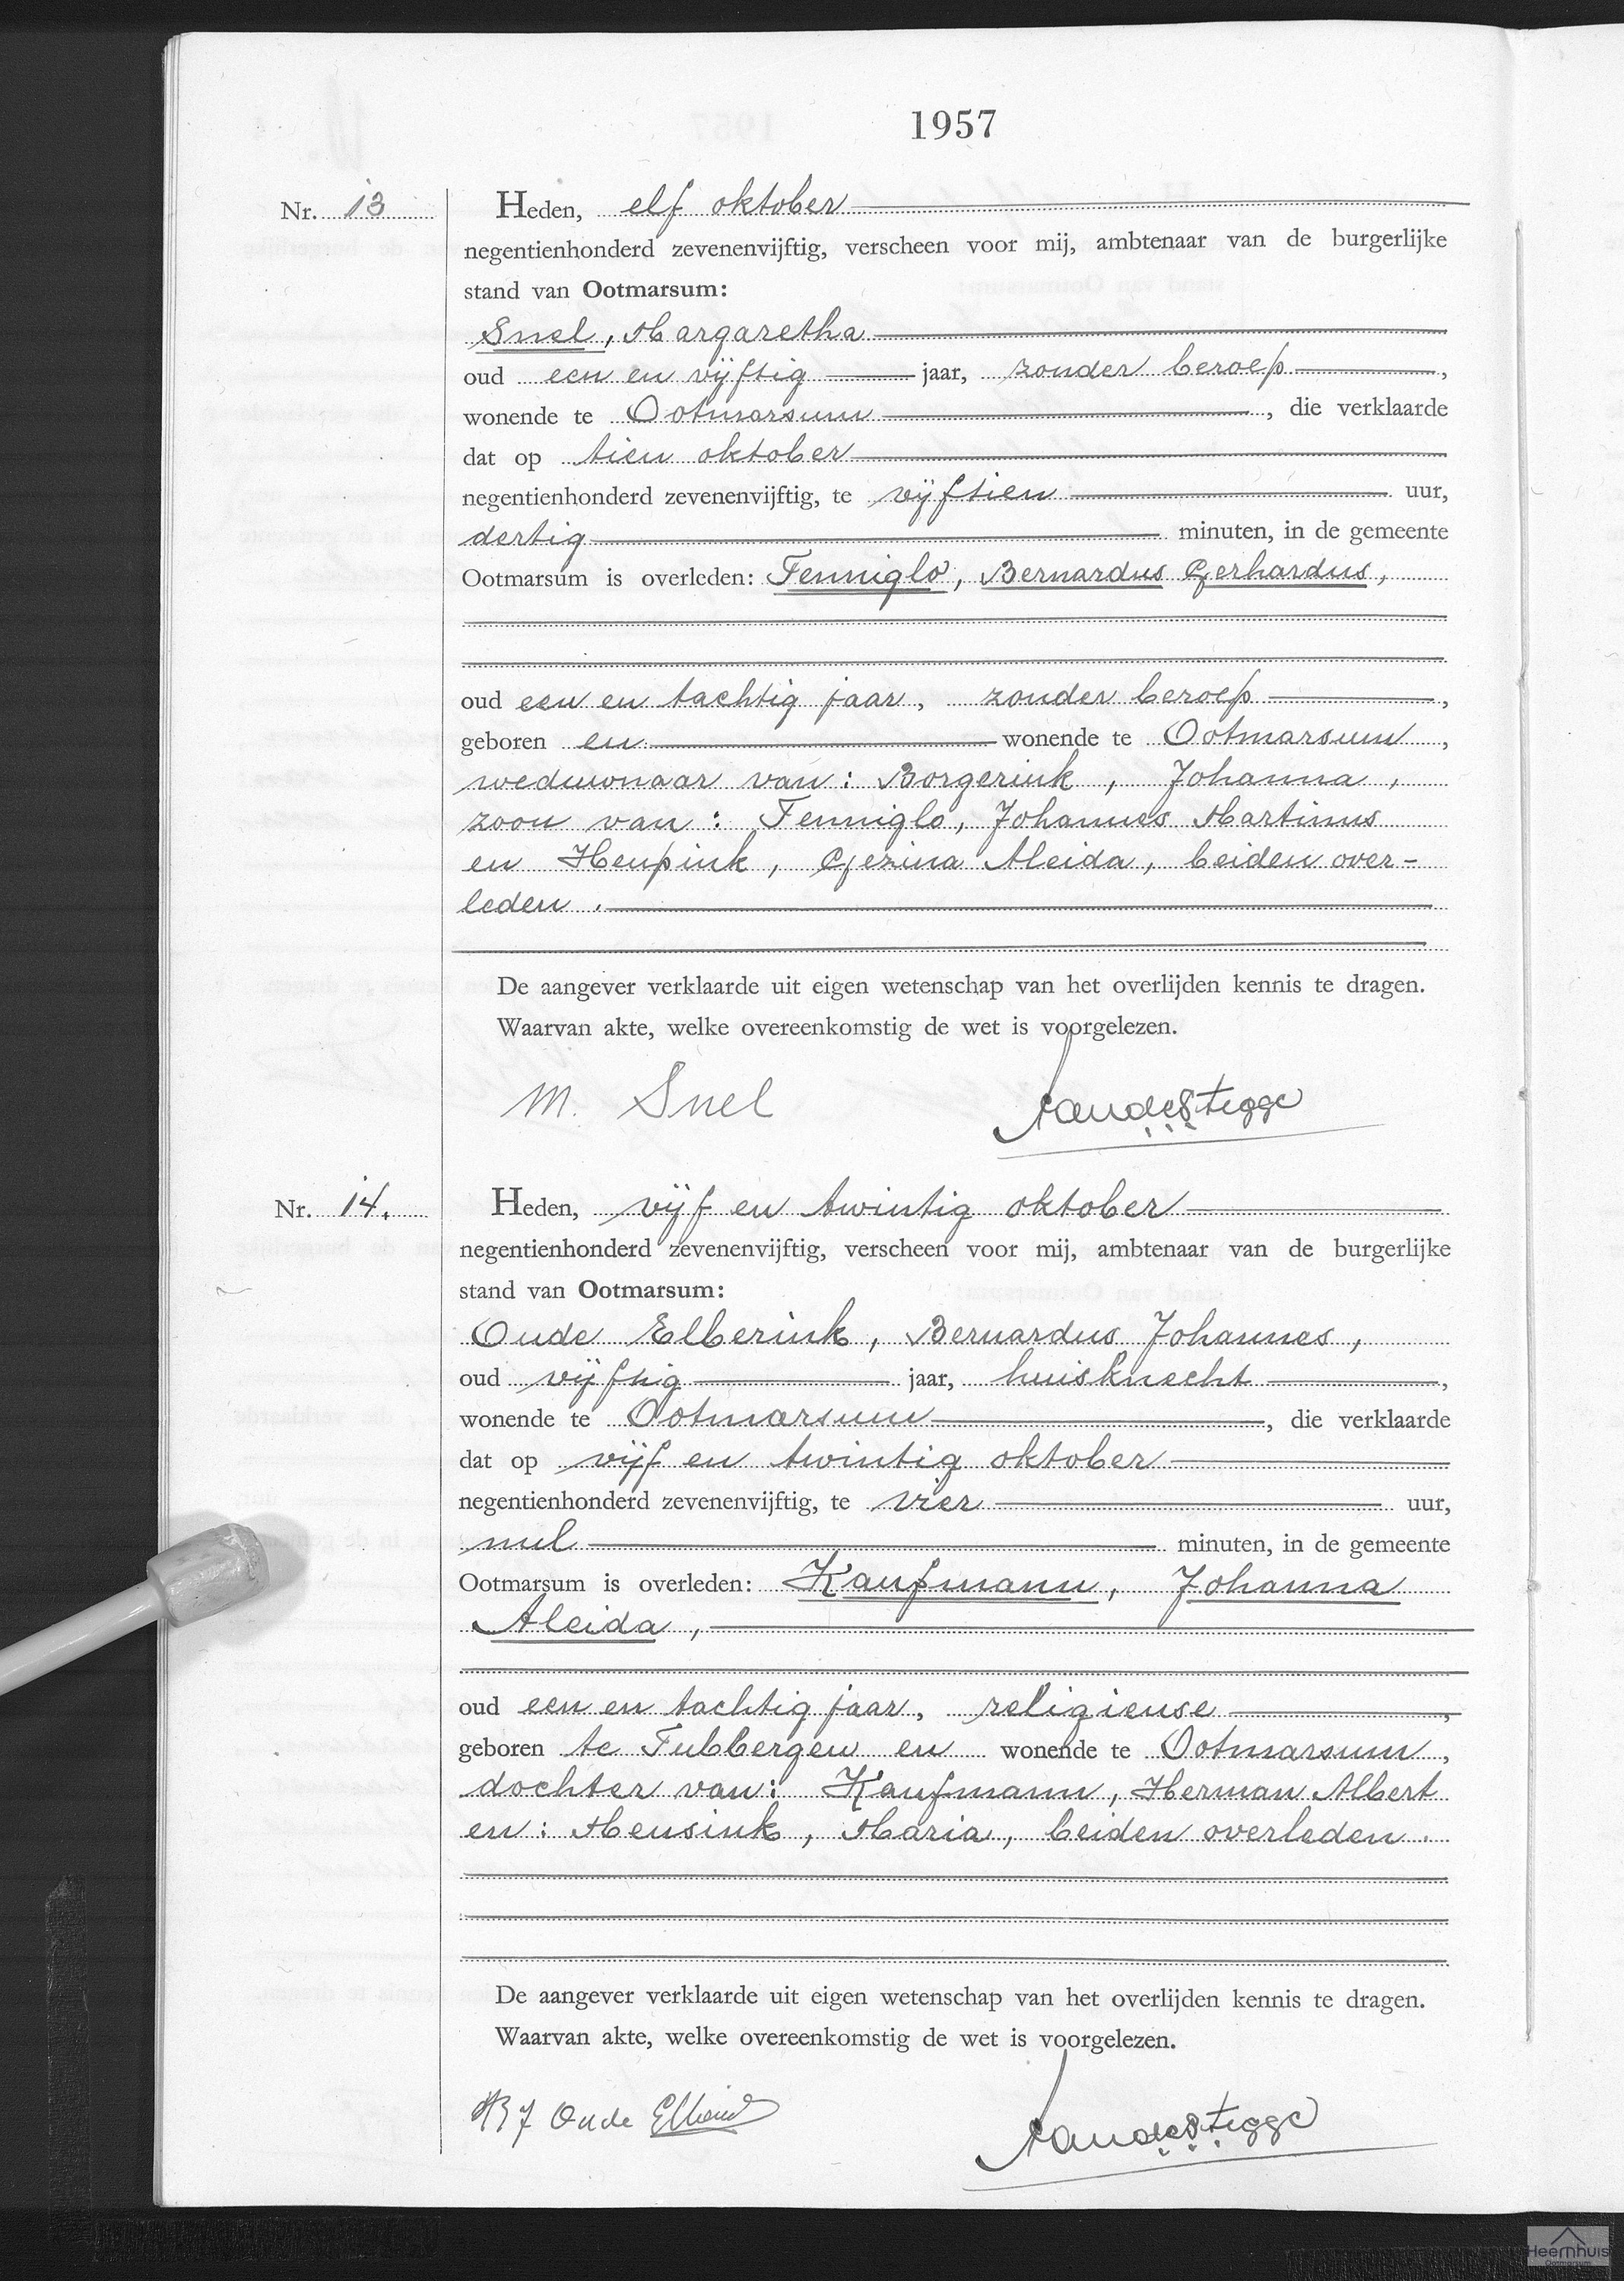 1957
Nr. 13
Heden, elf oktober
negentienhonderd zevenenvijftig, verscheen voor mij, ambtenaar van de burgerlijke
stand van Ootmarsum:
Snel, Margaretha
oud een en vijftig jaar, zonder beroep,
wonende te Ootmarsum, die verklaarde
dat op tien oktober
negentienhonderd zevenenvijftig, te vijftien uur,
dertig minuten, in de gemeente
Ootmarsum is overleden: Fenniglo, Bernardus Gerhardus,
oud een en tachtig jaar, zonder beroep,
geboren en wonende te Ootmarsum,
weduwnaar van: Borgerink, Johanna,
zoon van: Fenniglo, Johannes Martinus
en Heupink, Gezina Aleida, beiden over-
leden.
De aangever verklaarde uit eigen wetenschap van het overlijden kennis te dragen.
Waarvan akte, welke overeenkomstig de wet is voorgelezen.
M. Snel
Nr. 14.
Heden, vijf en twintig oktober
negentienhonderd zevenenvijftig, verscheen voor mij, ambtenaar van de burgerlijke
stand van Ootmarsum:
Oude Elberink, Bernardus Johannes,
oud vijftig jaar, huisknecht,
wonende te Ootmarsum, die verklaarde
dat op vijf en twintig oktober
negentienhonderd zevenenvijftig, te vier uur,
nul minuten, in de gemeente
Ootmarsum is overleden: Kaufmann, Johanna
Aleida,
oud een en tachtig jaar, religieuse,
geboren te Tubbergen en wonende te Ootmarsum,
dochter van: Kaufmann, Herman Albert
en: Mensink, Maria, beiden overleden.
De aangever verklaarde uit eigen wetenschap van het overlijden kennis te dragen.
Waarvan akte, welke overeenkomstig de wet is voorgelezen.
Oude
Heemhuis
Ootmarsum